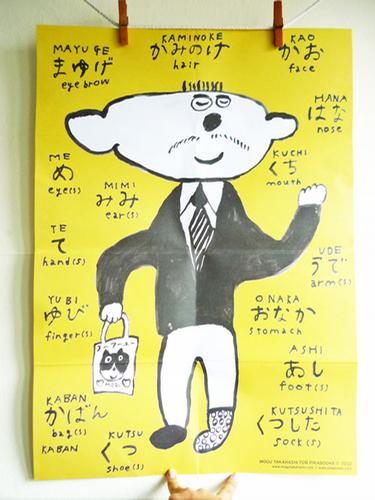 KAMINOKE
かみのけ
hair
KAO
かお
face
MAYUGE
まゆげ
eyebrow
HANA
はな
nose
ME
め
eye(s)
KUCHI
くち
mouth
MIMI
みみ
ear(s)
TE
て
hand(s)
UDE
うで
arm(s)
YUBI
ゆび
finger(s)
ONAKA
おなか
stomach
ASHI
あし
foot(s)
KABAN
かばん
bag(s)
KABAN
KUTSU
くつ
shoe(s)
KUTSUSHITA
くつした
sock(s)
MOGU TAKAHASHI FOR PIKABOOKS © 2010